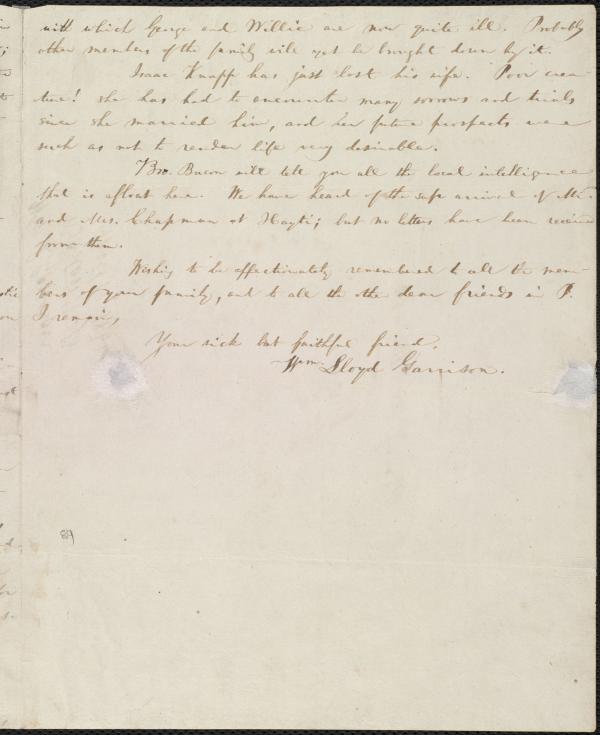 with which George and Willie are now quite ill. Probably
other members of the family will yet be brought down by it.
Isaac Knapp has just lost his wife. Poor crea-
ture! she has had to encounter many sorrows and trials
since she married him, and her future prospects were
such as not to render life very desirable.
Bro. Bacon will tell you all the local intelligence
that is afloat here. We have heard of the safe arrival of Mr.
and Mrs. Chapman at Hayti; but no letters have been received
from them.
Wishing to be affectionately remembered to all the mem-
bers of your family, and to all the other dear friends in P.
I remain,
Your sick but faithful friend,
Wm. Lloyd Garrison.
89